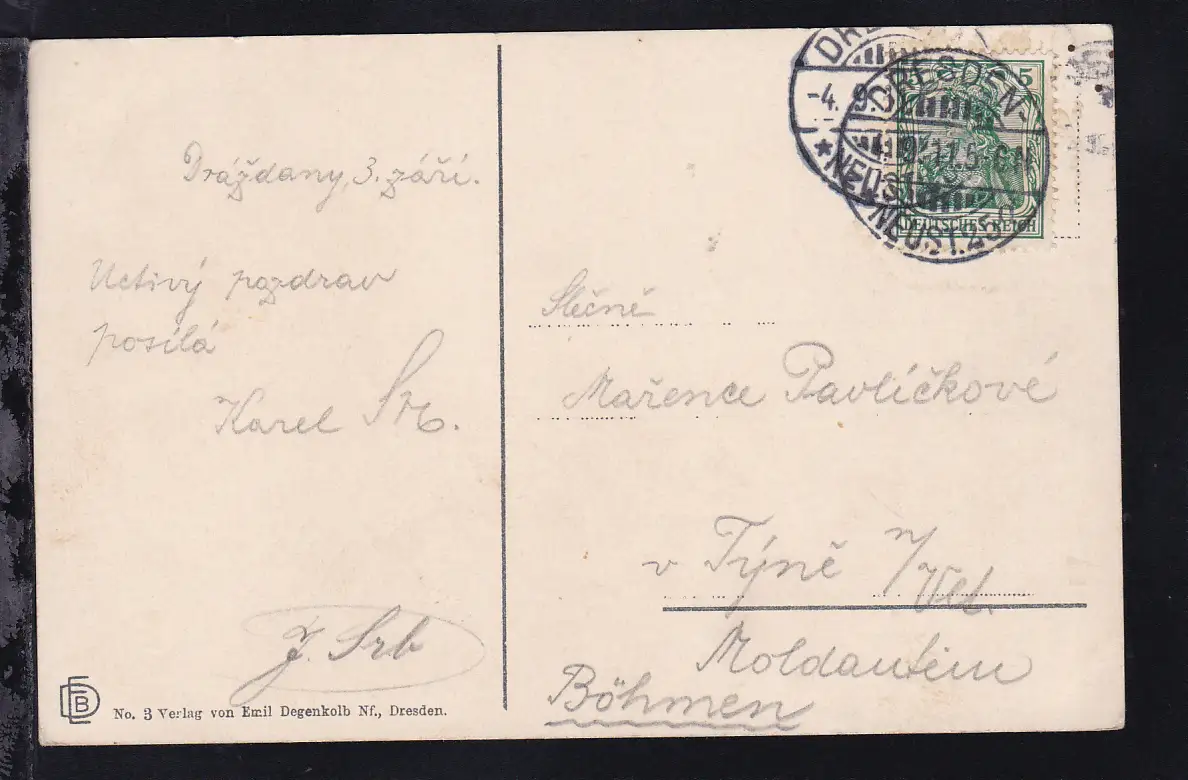 Drážďany, 3. září.
Uctivý pozdrav
posílá
Karel
J. Srb
EDB
No. 3 Verlag von Emil Degenkolb Nf., Dresden.
DRESDEN-
-4. 9.
* NEUST.
5
DEUTSCHES REICH
Slečně
Mařence Pavlíčkové
v Týně n/Vlt.
Moldautein
Böhmen